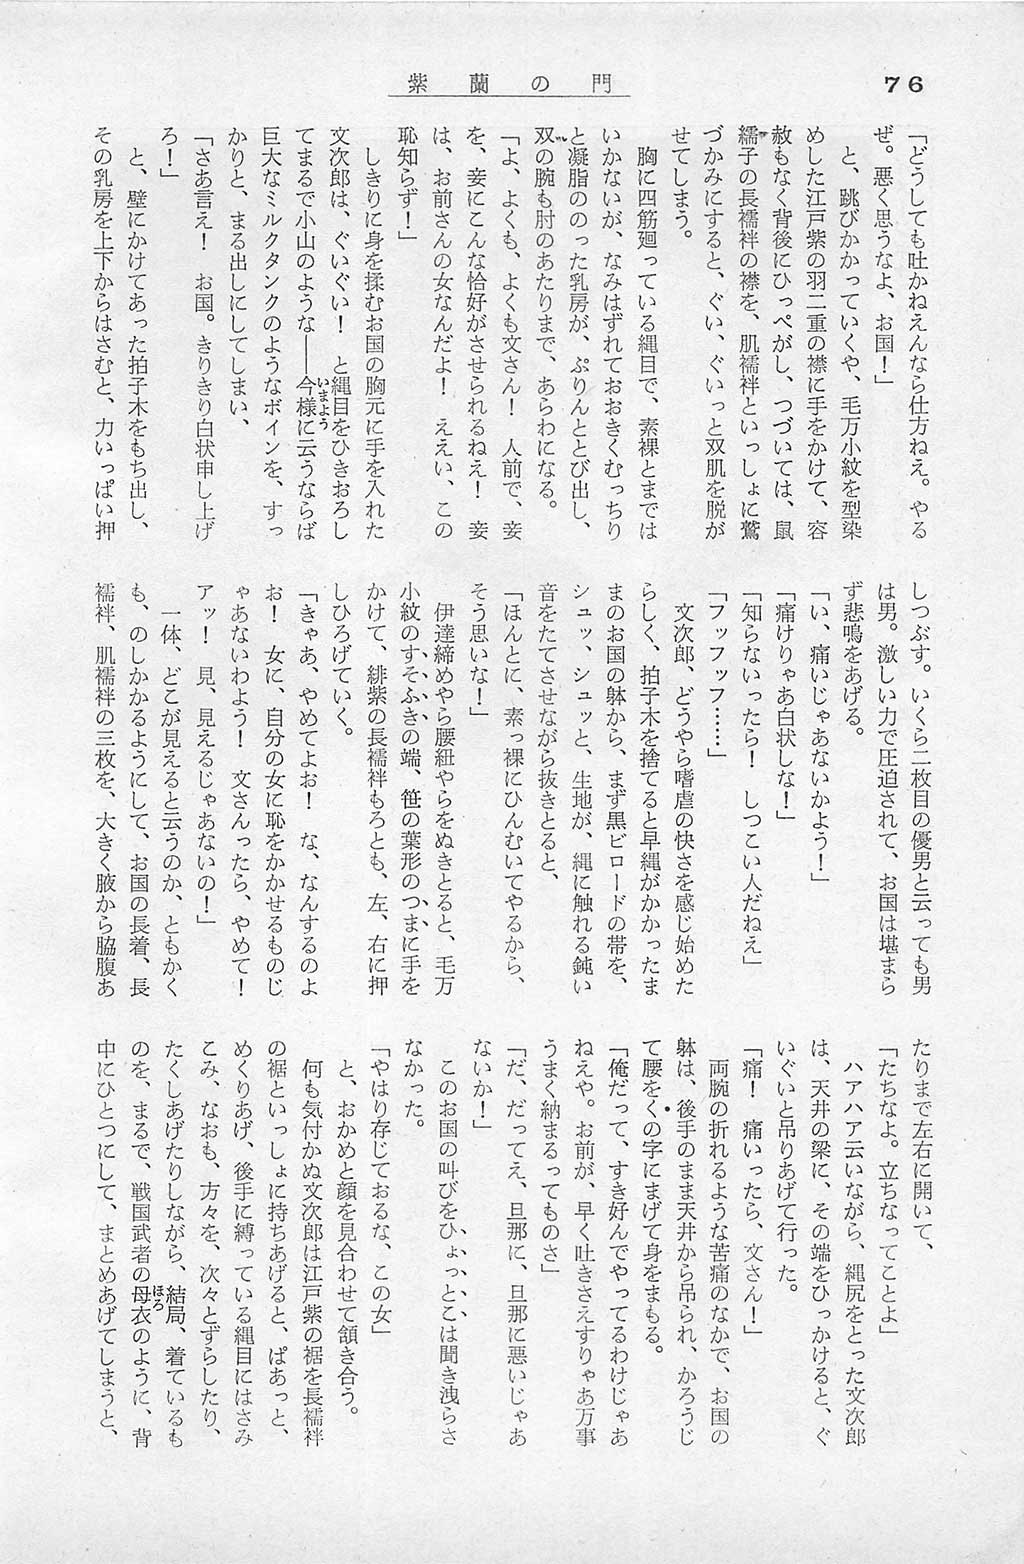 76
紫蘭の門
「どうしても吐かねえんなら仕方ねえ。やる
ぜ。悪く思うなよ、お国！」
と、跳びかかっていくや、毛万小紋を型染
めした江戸紫の羽二重の襟に手をかけて、容
赦もなく背後にひっぺがし、つづいては、鼠
繻子の長襦袢の襟を、肌襦袢といっしょに鷲
づかみにすると、ぐい、ぐいっと双肌を脱が
せてしまう。
胸に四筋廻っている縄目で、素裸とまでは
いかないが、なみはずれておおきくむっちり
と凝脂ののった乳房が、ぷりんととび出し、
双の腕も肘のあたりまで、あらわになる。
「よ、よくも、よくも文さん！　人前で、妾
を、妾にこんな恰好がさせられるねえ！　妾
は、お前さんの女なんだよ！　ええい、この
恥知らず！」
しきりに身を揉むお国の胸元に手を入れた
文次郎は、ぐいぐい！　と縄目をひきおろし
てまるで小山のような――今様に云うならば
巨大なミルクタンクのようなボインを、すっ
かりと、まる出しにしてしまい、
「さあ言え！　お国。きりきり白状申し上げ
ろ！」
と、壁にかけてあった拍子木をもち出し、
その乳房を上下からはさむと、力いっぱい押
しつぶす。いくら二枚目の優男と云っても男
は男。激しい力で圧迫されて、お国は堪まら
ず悲鳴をあげる。
「い、痛いじゃあないかよう！」
「痛けりゃあ白状しな！」
「知らないったら！　しつこい人だねえ」
「フッフッフ……」
文次郎、どうやら嗜虐の快さを感じ始めた
らしく、拍子木を捨てると早縄がかかったま
まのお国の躰から、まず黒ビロードの帯を、
シュッ、シュッと、生地が、縄に触れる鈍い
音をたてさせながら抜きとると、
「ほんとに、素っ裸にひんむいてやるから、
そう思いな！」
伊達締めやら腰紐やらをぬきとると、毛万
小紋のすそふきの端、笹の葉形のつまに手を
かけて、緋紫の長襦袢もろとも、左、右に押
しひろげていく。
「きゃあ、やめてよお！　な、なんするのよ
お！　女に、自分の女に恥をかかせるものじ
ゃあないわよう！　文さんったら、やめて！
アッ！　見、見えるじゃあないの！」
一体、どこが見えると云うのか、ともかく
も、のしかかるようにして、お国の長着、長
襦袢、肌襦袢の三枚を、大きく腋から脇腹あ
たりまで左右に開いて、
「たちなよ。立ちなってことよ」
ハアハア云いながら、縄尻をとった文次郎
は、天井の梁に、その端をひっかけると、ぐ
いぐいと吊りあげて行った。
「痛！　痛いったら、文さん！」
両腕の折れるような苦痛のなかで、お国の
躰は、後手のまま天井から吊られ、かろうじ
て腰をくの字にまげて身をまもる。
「俺だって、すき好んでやってるわけじゃあ
ねえや。お前が、早く吐きさえすりゃあ万事
うまく納まるってものさ」
「だ、だってえ、旦那に、旦那に悪いじゃあ
ないか！」
このお国の叫びをひょっとこは聞き洩らさ
なかった。
「やはり存じておるな、この女」
と、おかめと顔を見合わせて頷き合う。
何も気付かぬ文次郎は江戸紫の裾を長襦袢
の裾といっしょに持ちあげると、ぱあっと、
めくりあげ、後手に縛っている縄目にはさみ
こみ、なおも、方々を、次々とずらしたり、
たくしあげたりしながら、結局、着ているも
のを、まるで、戦国武者の母衣のように、背
中にひとつにして、まとめあげてしまうと、